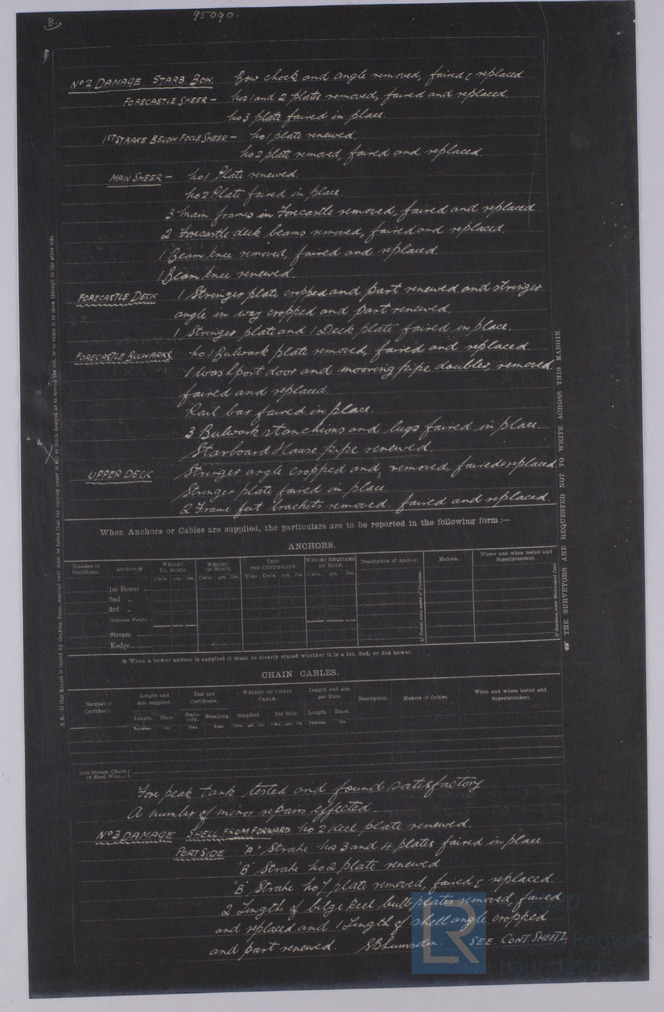 8.
95090.
No 2 DAMAGE STARB. BOW. Bow chock and angle removed, faired & replaced
FORECASTLE SHEER – Nos 1 and 2 plates removed, faired and replaced.
No 3 plate faired in place.
1ST STRAKE BELOW FOCSLE SHEER – No 1 plate renewed.
No 2 plate removed, faired and replaced.
MAIN SHEER – No 1 Plate renewed.
No 2 Plate faired in place.
3 Main frames in Forecastle removed, faired and replaced
2 Forecastle deck beams removed, faired and replaced
1 Beam knee removed, faired and replaced.
1 Beam knee renewed.
FORECASTLE DECK 1 Stringer plate cropped and part renewed and stringer
angle in way cropped and part renewed.
1 Stringer plate and 1 Deck plate faired in place.
FORECASTLE BULWARKS No 1 Bulwark plate removed, faired and replaced
1 Washport door and mooring pipe doubler, removed,
faired and replaced.
Rail bar faired in place.
3 Bulwark stanchions and lugs faired in place.
Starboard Hawse pipe renewed.
UPPER DECK Stringer angle cropped and, removed faired & replaced
Stringer plate faired in place
2 Frame feet brackets removed, faired and replaced.
When Anchors or Cables are supplied, the particulars are to be reported in the following form :—
ANCHORS.
Number of Certificate. ANCHORS WEIGHT EX STOCK. WEIGHT OF STOCK. TEST PER CERTIFICATE. WEIGHT REQUIRED BY RULE. Description of Anchor. Makers. Where and when tested and Superintendent.
Cwts. qrs. lbs. Cwts. qrs. lbs. Tons Cwts. qrs. lbs. Cwts. qrs. lbs.
1st Bower ...
2nd „
3rd „
Collective Weight.
Stream ......
Kedge........
When a bower anchor is supplied it must be clearly stated whether it is a 1st, 2nd, or 3rd bower.
CHAIN CABLES.
Number of Certificate. Length and size supplied. Test per Certificate. WEIGHT OF CHAIN CABLE. Length and size per Rule. Description. Makers of Cables. Where and when tested and Superintendent
Length. Diam. Breaking. Supplied. Per Rule. Length. Diam.
Stream Chain or Steel Wire...
Fore peak tank tested and found satisfactory
A number of minor repairs effected
No 3 DAMAGE SHELL FROM FORWARD No 2 Keel plate renewed.
PORT SIDE "A" Strake Nos 3 and 4 plates faired in place
'B' Strake No 2 plate renewed
'B' Strake No 7 plate removed, faired & replaced
2 Length of bilge keel bulb plates removed faired
and replaced and 1 Length of shell angle cropped
and part renewed. SEE. CONT. SHEET 2.
THE SURVEYORS ARE REQUESTED NOT TO WRITE ACROSS THIS MARGIN
LR
Foundation